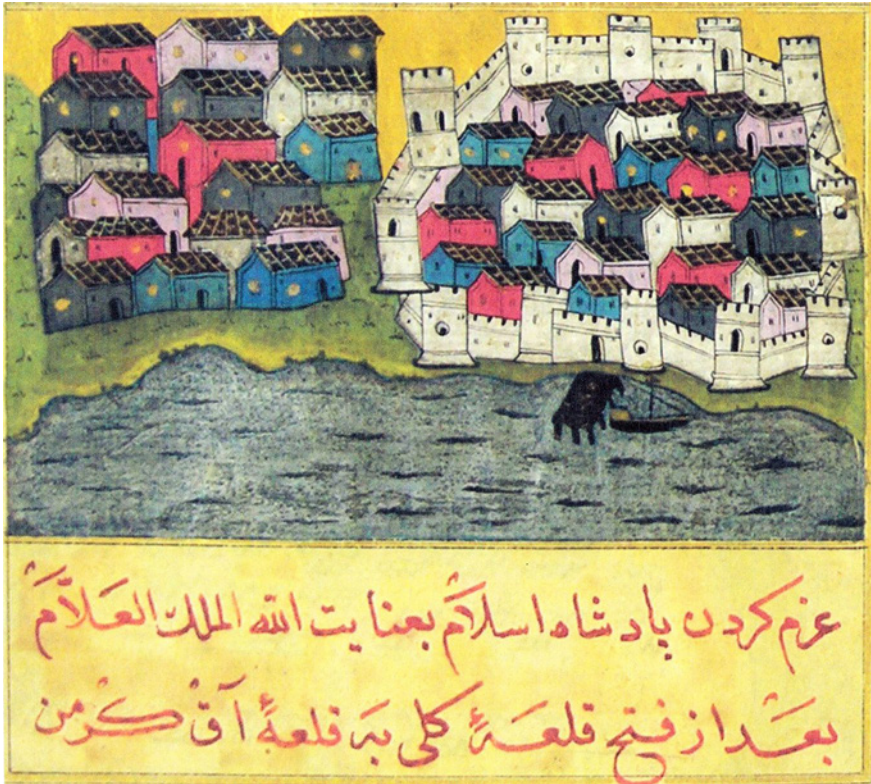 عزم كردن پادشاه اسلام بعنايت الله الملك العلّام
بعد از فتح قلعهٔ كلى به قلعهٔ آق كرمن